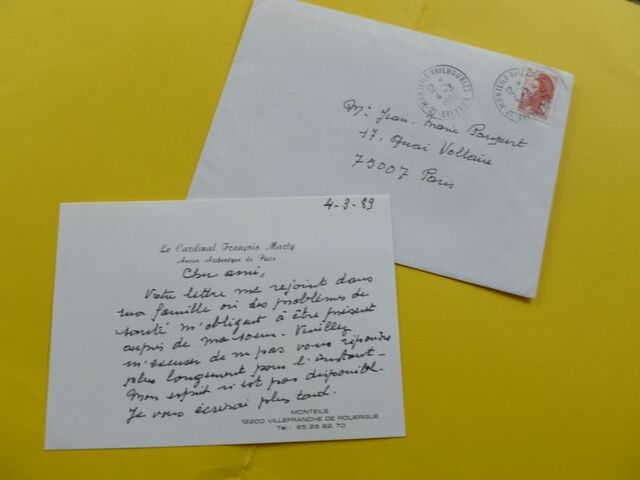 MONTEILS-VAILHOURLES
12-AVEYRON
Mr Jean-Marie Paupert
17, Quai Voltaire
75007 Paris
4-3-89
Le Cardinal François Marty
Ancien Archevêque de Paris
Cher ami,
Votre lettre me rejoint dans
ma famille où des problèmes de
santé m'obligent à être présent
auprès de ma soeur. Veuillez
m'excuser de ne pas vous répondre
plus longement pour l'instant.
Mon esprit n'est pas disponible.
Je vous écrirai plus tard.
MONTEILS
12200 VILLEFRANCHE DE ROUERGUE
Tél. : 65.29.62.70